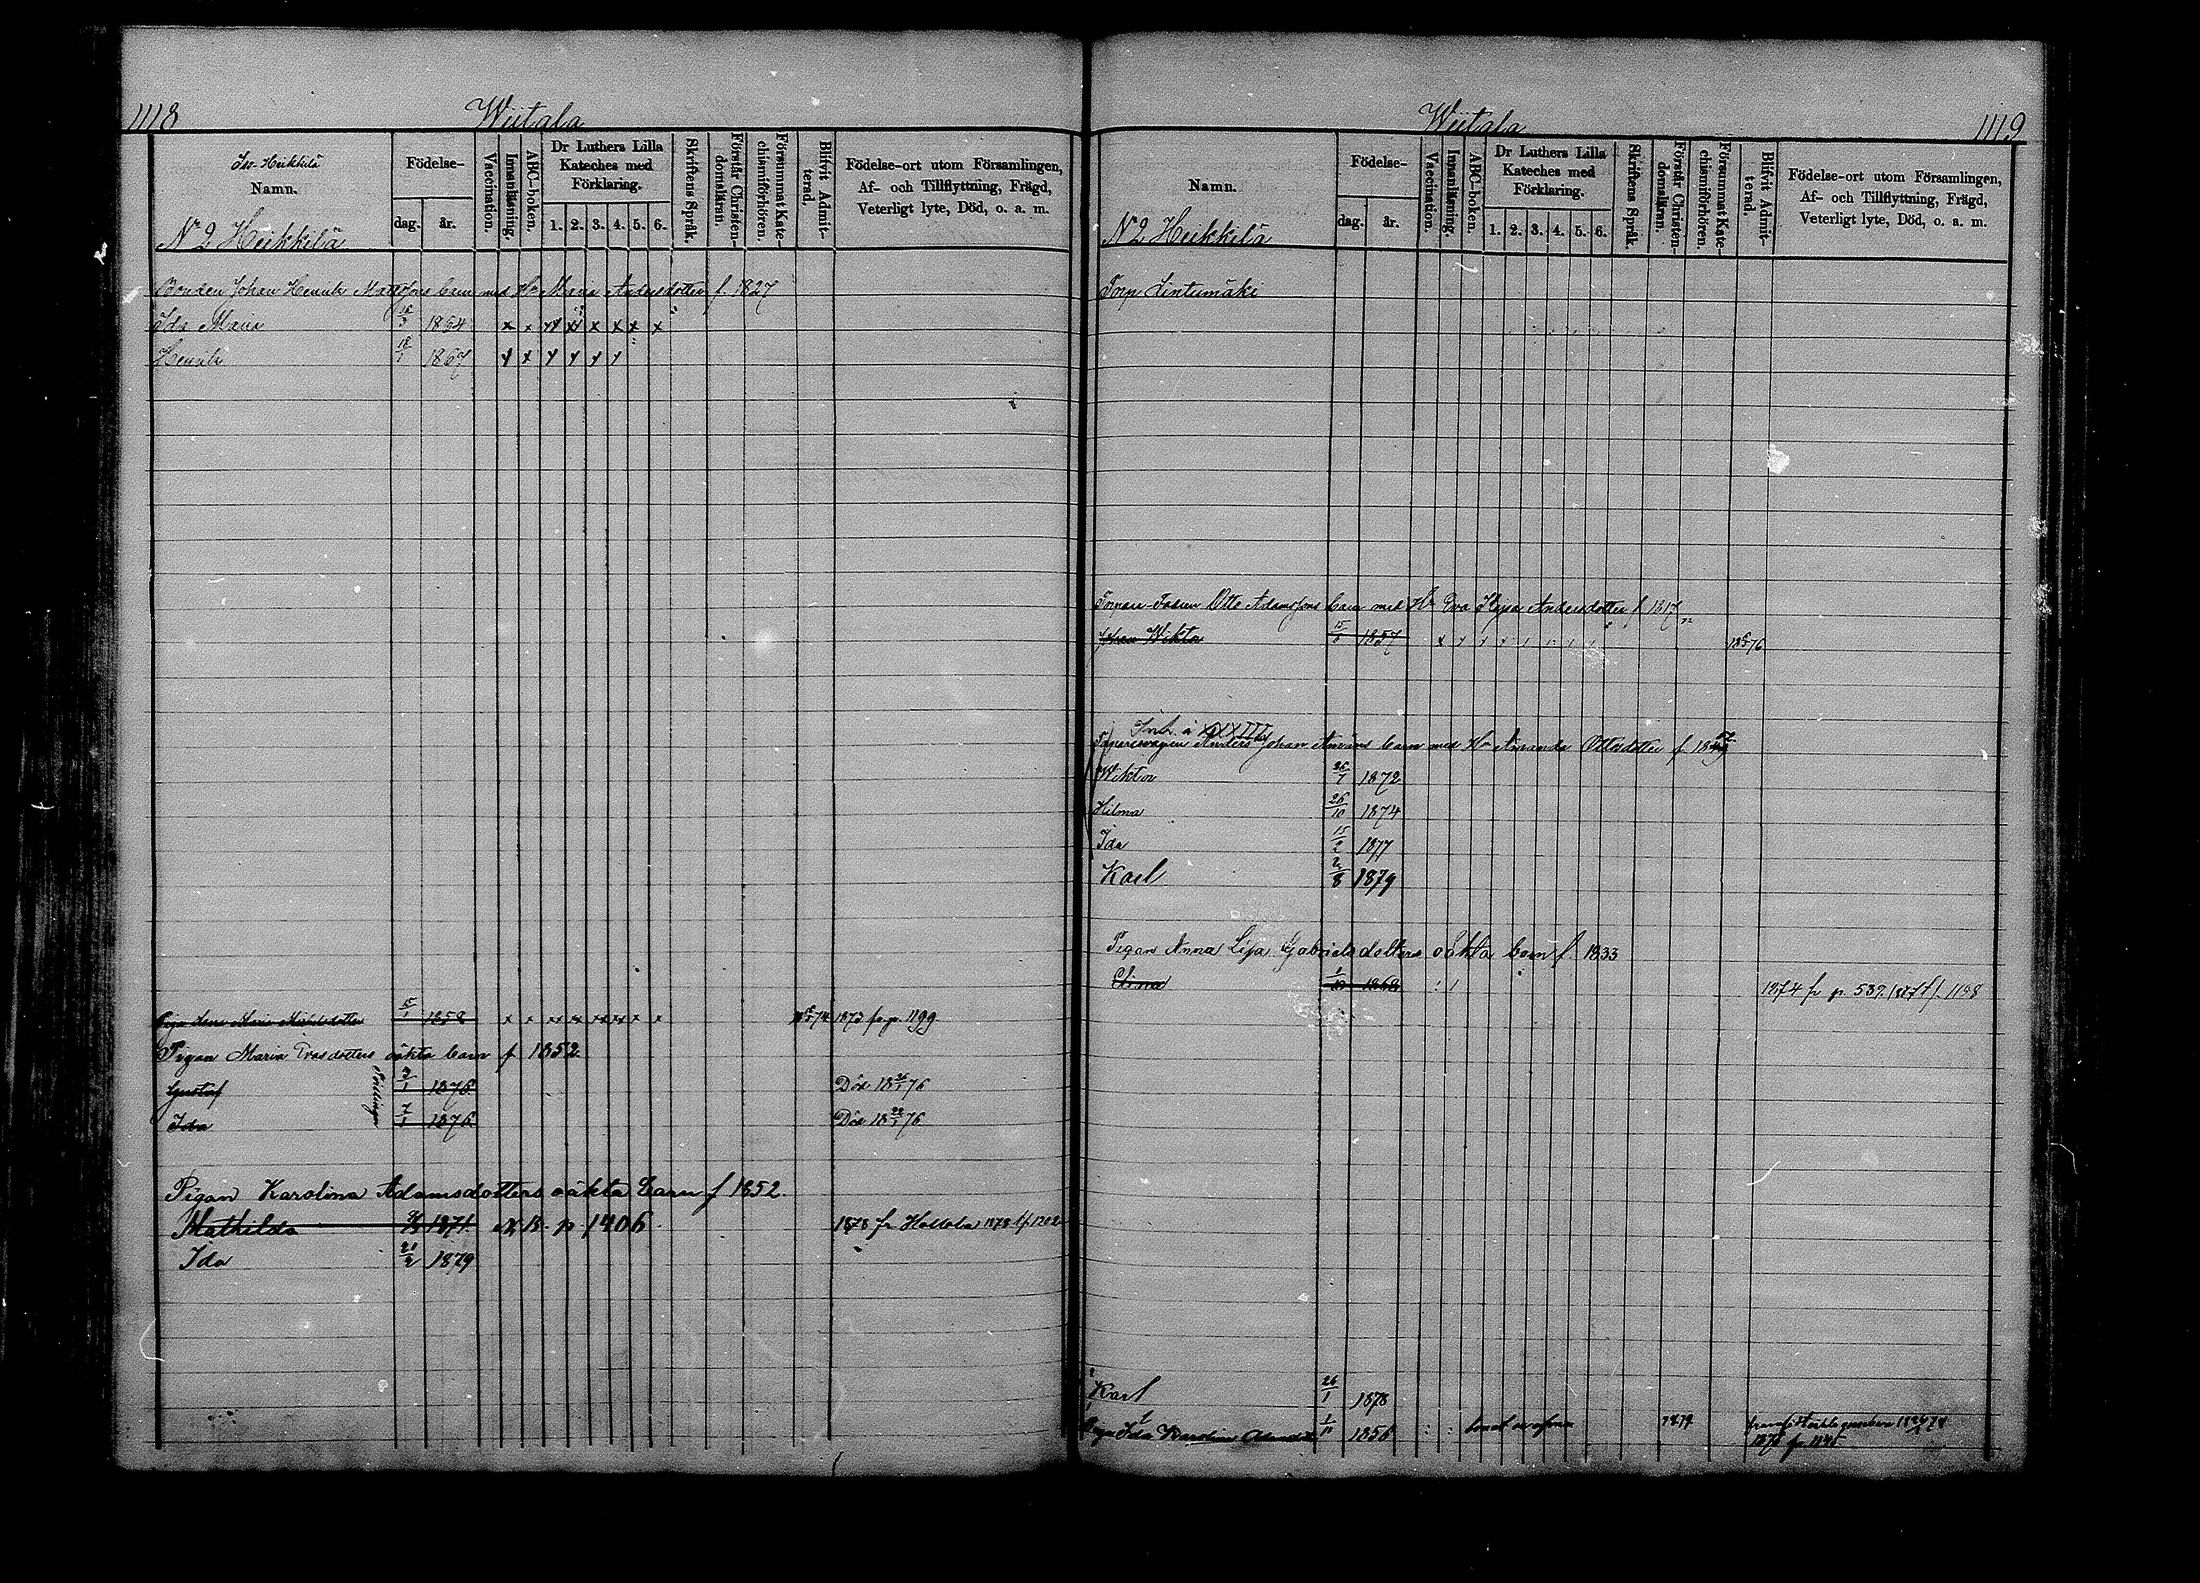 1118 Wiitala
Iso-Heikkilä
Namn.
Födelse-
dag. år.
Vaccination.
Innanläsning.
ABC-boken.
Dr Luthers Lilla Kateches med Förklaring.
1. 2. 3. 4. 5. 6.
Skriftens Språk.
Förstår Christendomsläran.
Försummat Katechismiförhören.
Blifvit Admitterad.
Födelse-ort utom Församlingen, Af- och Tillflyttning, Frägd, Veterligt lyte, Död, o. a. m.
N 2 Heikkilä
Bonden Johan Henrik Mattssons barn med Hu Maria Andersdotter f. 1827
Ida Maria 1864 x x x x x x x x
Henrik 18/1 1867 x x x x x x
Maria Michelsdotter 15/1 1858 x x x x x x x x 1873 fr. p. 1199
Pigan Maria Erasdotters oäkta barn f 1852
Gustaf 7/1 1876 Död 18 76
Tvillingar
Ida 7/1 1876 Död 18 22/1 76
Pigan Karolina Adamsdotters oäkta barn f 1852.
Mathilda 1871. N.B. p 1406 1878 fr Hollola 1878 tf 1202
Ida 21/2 1879
Wiitala 1119
Namn.
Födelse-
dag. år.
Vaccination.
Innanläsning.
ABC-boken.
Dr Luthers Lilla Kateches med Förklaring.
1. 2. 3. 4. 5. 6.
Skriftens Språk.
Förstår Christendomsläran.
Försummat Katechismiförhören.
Blifvit Admitterad.
Födelse-ort utom Församlingen, Af- och Tillflyttning, Frägd, Veterligt lyte, Död, o. a. m.
N 2 Heikkilä
Torp Lintumäki
Otto Adamssons barn med Hu Eva Kajsa Andersdotter f 1817
Johan Wiktor 15/6 1857 18 76
Inh. å
Anders Johan barn med Hu Amanda Ottosdotter f 18
Wiktor 26/7 1872
Hilma 26/10 1874
Ida 15/2 1877
Karl 2/8 1879
Pigan Anna Lisa Gabrielsdotters oäkta barn f. 1833
Elina 1/10 1868 1874 fr p. 539. 1877 tf. 1198
Karl 26/1 1878
Ida Karolina 1/11 1856 1879